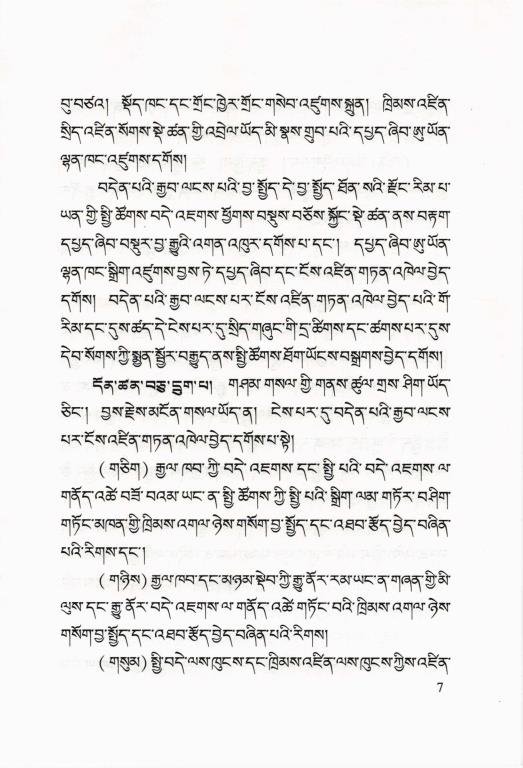 བུ་བཙའ། སྡོད་ཁང་དང་གྲོང་ཁྱེར་གྲོང་གསེབ་འཛུགས་སྐྲུན། ཁྲིམས་འཛིན་
སྲིད་འཛིན་སོགས་སྡེ་ཚན་གྱི་འབྲེལ་ཡོད་མི་སྣས་གྲུབ་པའི་དཔྱད་ཞིབ་ཨུ་ཡོན་
ལྷན་ཁང་འཛུགས་དགོས།
བདེན་པའི་རྒྱབ་ལངས་པའི་བྱ་སྤྱོད་དེ་བྱ་སྤྱོད་ཐོན་སའི་རྫོང་རིམ་པ་
ཡན་གྱི་སྤྱི་ཚོགས་བདེ་འཇགས་ཕྱོགས་བསྡུས་བཅོས་སྐྱོང་སྡེ་ཚན་ནས་བརྟག་
དཔྱད་ཞིབ་བསྡུར་བྱ་རྒྱུའི་འགན་འཁུར་དགོས་པ་དང་། དཔྱད་ཞིབ་ཨུ་ཡོན་
ལྷན་ཁང་སྒྲིག་འཛུགས་བྱས་ཏེ་དཔྱད་ཞིབ་དང་ངོས་འཛིན་གཏན་འཁེལ་བྱེད་
དགོས། བདེན་པའི་རྒྱབ་ལངས་པར་ངོས་འཛིན་གཏན་འཁེལ་བྱེད་པའི་གོ་
རིམ་དང་དུས་ཚད་དེ་ངེས་པར་དུ་སྲིད་གཞུང་གི་དྲ་ཚིགས་དང་ཚགས་པར་དུས་
དེབ་སོགས་ཀྱི་སྨྱན་སྦྱོར་བརྒྱུད་ནས་སྤྱི་ཚོགས་ཐོག་ཡོངས་བསྒྲགས་བྱེད་དགོས།
དོན་ཚན་བཅུ་དྲུག་པ། གཤམ་གསལ་གྱི་གནས་ཚུལ་གྲས་ཤིག་ཡོད་
ཅིང་། བྱས་རྗེས་མངོན་གསལ་ཡོད་ན། ངེས་པར་དུ་བདེན་པའི་རྒྱབ་ལངས་
པར་ངོས་འཛིན་གཏན་འཁེལ་བྱེད་དགོས་པ་སྟེ།
(གཅིག) རྒྱལ་ཁབ་ཀྱི་བདེ་འཇགས་དང་སྤྱི་པའི་བདེ་འཇགས་ལ་
གནོད་འཚེ་བཟོ་བའམ་ཡང་ན་སྤྱི་ཚོགས་ཀྱི་སྤྱི་པའི་སྒྲིག་ལམ་གཏོར་བཤིག་
གཏོང་མཁན་གྱི་ཁྲིམས་འགལ་ཉེས་གསོག་བྱ་སྤྱོད་དང་འཐབ་རྩོད་བྱེད་བཞིན་
པའི་རིགས་དང་།
(གཉིས) རྒྱལ་ཁབ་དང་མཉམ་སྡེབ་ཀྱི་རྒྱུ་ནོར་རམ་ཡང་ན་གཞན་གྱི་མི་
ལུས་དང་རྒྱུ་ནོར་བདེ་འཇགས་ལ་གནོད་འཚེ་གཏོང་བའི་ཁྲིམས་འགལ་ཉེས་
གསོག་བྱ་སྤྱོད་དང་འཐབ་རྩོད་བྱེད་བཞིན་པའི་རིགས།
(གསུམ) སྤྱི་བདེ་ལས་ཁུངས་དང་ཁྲིམས་འཛིན་ལས་ཁུངས་ཀྱིས་འཛིན་
7